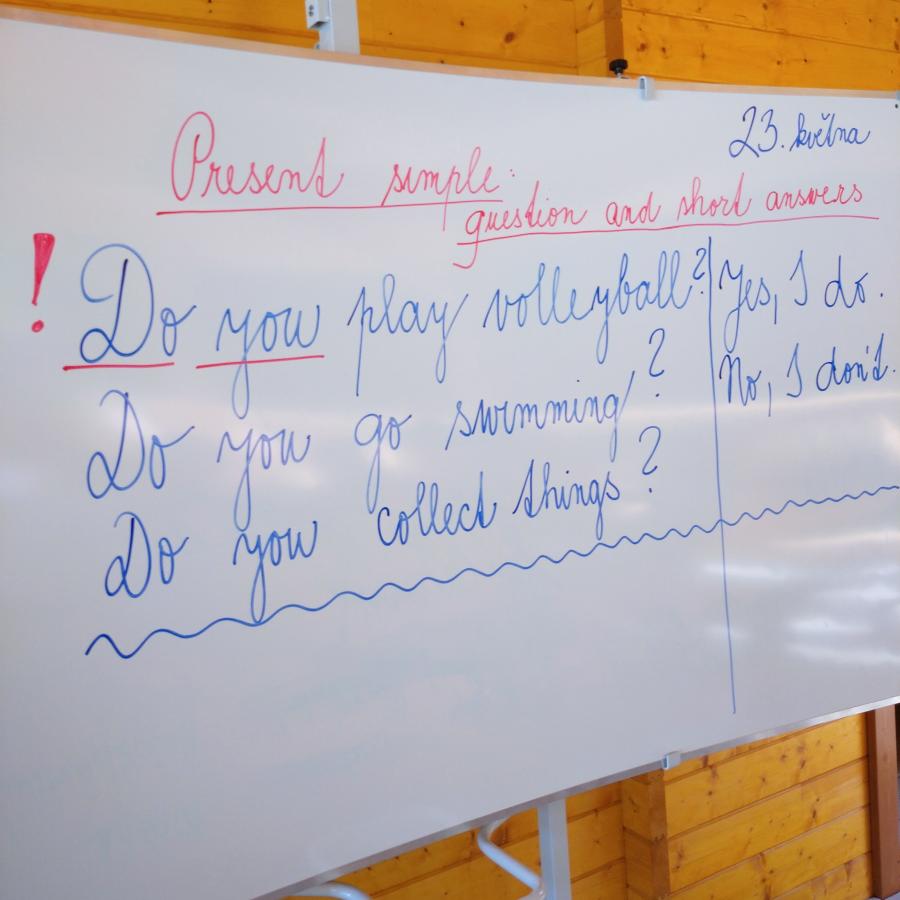 23. května
Present simple:
question and short answers
! Do you play volleyball? Yes, I do.
Do you go swimming? No, I don't.
Do you collect things?